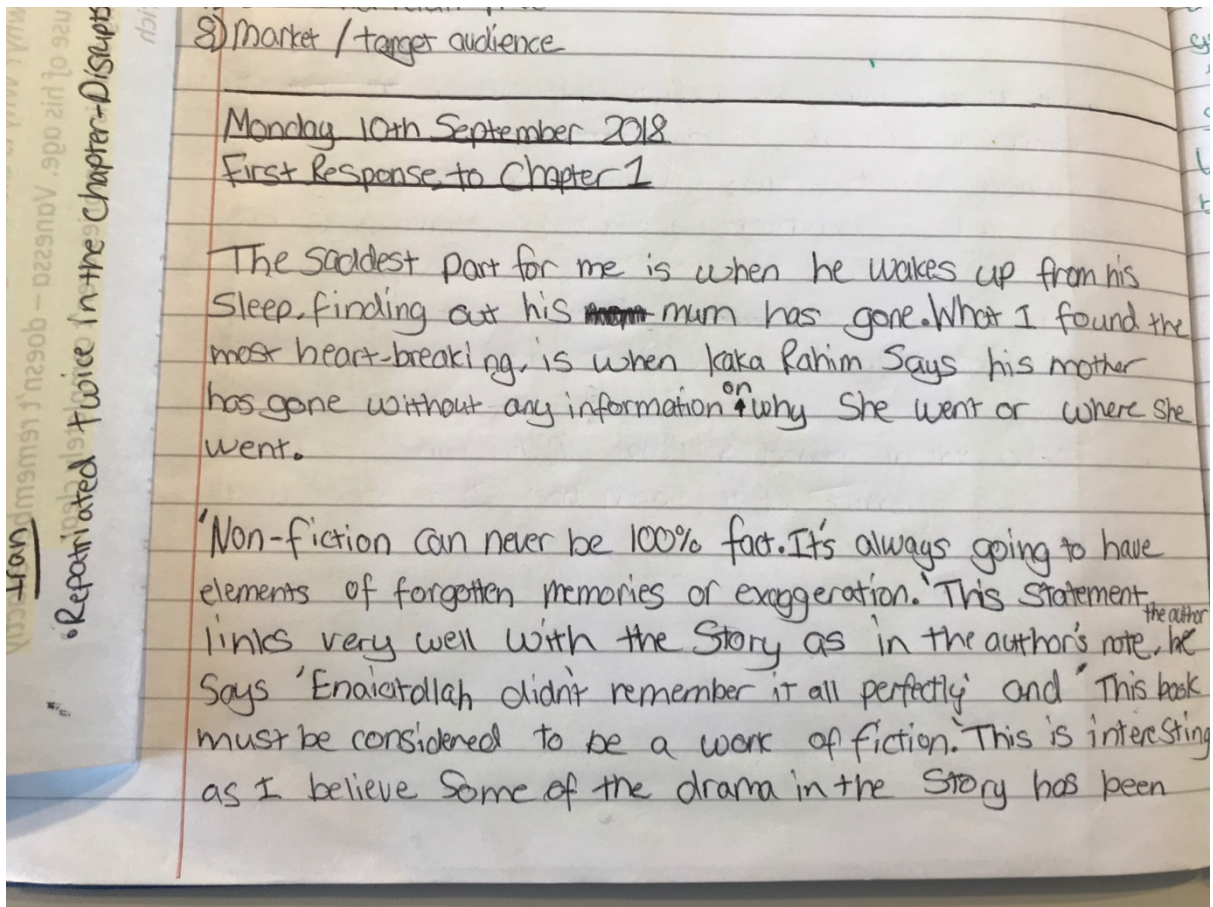 8) Market / target audience
Monday 10th September 2018
First Response to Chapter 1
The saddest part for me is when he wakes up from his
sleep, finding out his mum has gone. What I found the
most heart-breaking, is when kaka Rahim Says his mother
has gone without any information on why She went or where she
went.
'Non-fiction can never be 100% fact. It's always going to have
elements of forgotten memories or exaggeration.' This Statement
links very well with the Story as in the author's note, the author
Says 'Enaiatollah didn't remember it all perfectly' and 'This book
must be considered to be a work of fiction.' This is interesting
as I believe Some of the drama in the Story has been
• Repatriated twice In the Chapter - Disrupts
Iran
use of his age. Vanessa – doesn't remember